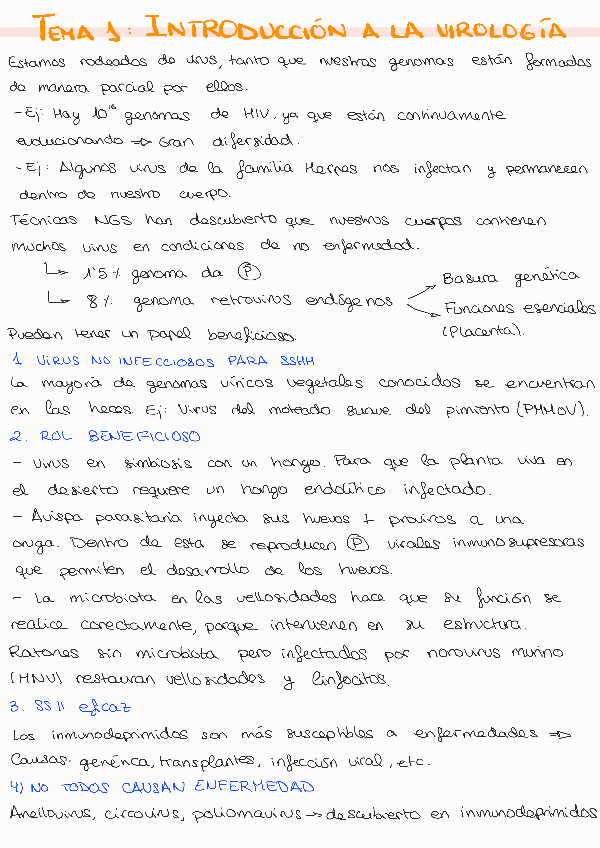 TEMA 1: INTRODUCCIÓN A LA VIROLOGÍA
Estamos rodeados de virus, tanto que nuestros genomas están formados
de manera parcial por ellos.
- Ej: Hay 10¹⁶ genomas de HIV, ya que están continuamente
evolucionando => Gran difersidad.
- Ej: Algunos virus de la familia Herpes nos infectan y permanecen
dentro de nuestro cuerpo.
Técnicas NGS han descubierto que nuestros cuerpos contienen
muchos virus en condiciones de no enfermedad.
↳ 1'5% genoma da Ⓟ
↳ 8% genoma retrovirus endógenos
Basura genética
Funciones esenciales
(Placenta).
Pueden tener un papel beneficioso.
1 VIRUS NO INFECCIOSOS PARA SSHH
La mayoría de genomas víricos vegetales conocidos se encuentran
en las heces. Ej: Virus del moteado suave del pimiento (PMMOV).
2. ROL BENEFICIOSO
- Virus en simbiosis con un hongo. Para que la planta viva en
el desierto requiere un hongo endolítico infectado.
- Avispa parasitaria inyecta sus huevos + provirus a una
oruga. Dentro de esta se reproducen Ⓟ virales inmunosupresoras
que permiten el desarrollo de los huevos.
- La microbiota en las vellosidades hace que su función se
realice corectamente, porque intervienen en su estructura.
Ratones sin microbiota pero infectados por norovirus murino
(MNV) restauran vellosidades y linfocitos.
3. SSII eficaz
Los inmunodeprimidos son más susceptibles a enfermedades =>
Causas: genérica, transplantes, infección viral, etc.
4) NO TODOS CAUSAN ENFERMEDAD
Anellovirus, circovirus, poliomavirus → descubierto en inmunodeprimidos